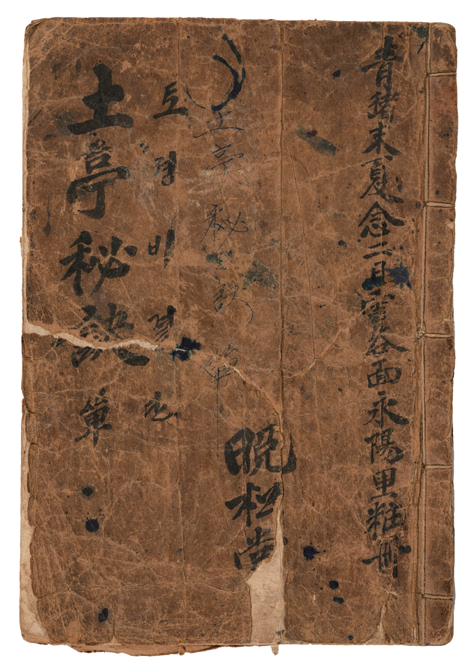 青猪末夏念二日雲谷面永陽里粧冊
晩松
土亭秘訣
토졍비결
土亭秘訣